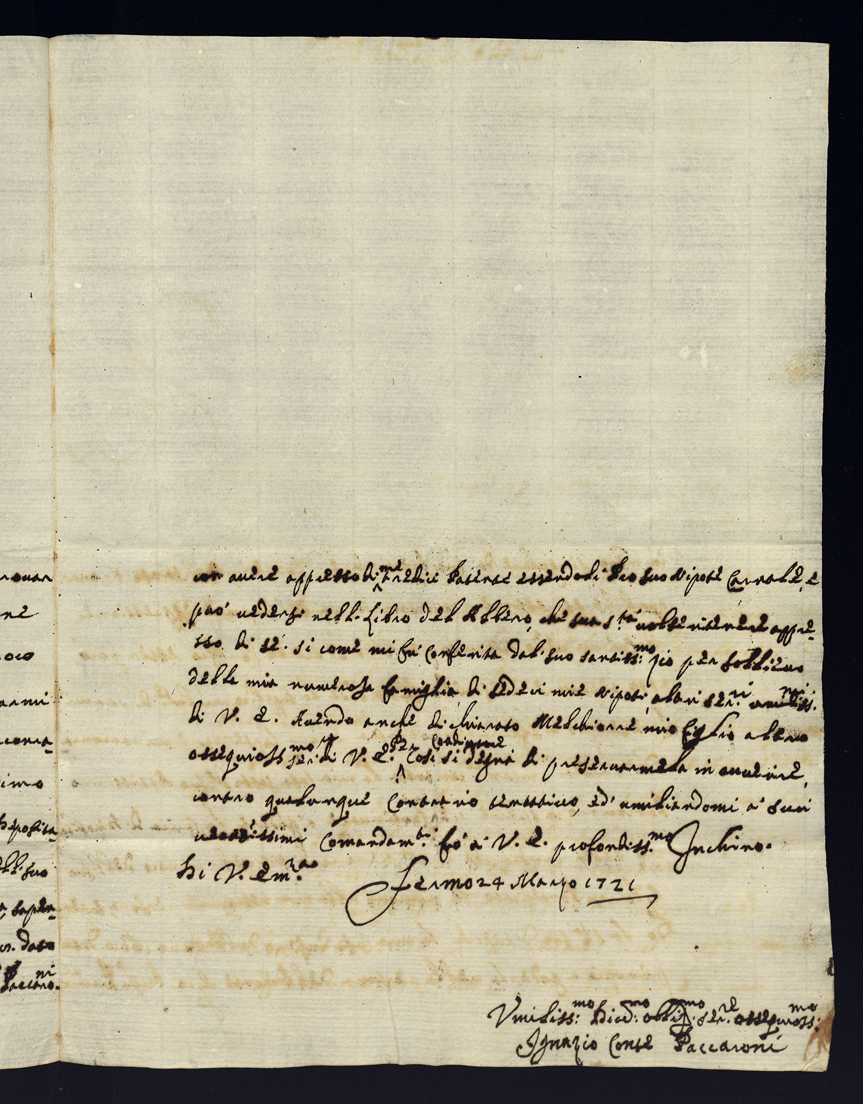 con avere appresso di me Tredici essendo di Dio suo Nipote Carnale, e
può vedersi nell. Libro dell Albero, che sua S.tà volse ritenere appre-
sso di sé. si come mi fù conferita dal suo santiss:mo Zio per sollievo
della mia numerosa famiglia di sedeci miei Nipoti altri ser.ri umiliss.mi
di V. E. Avendo anche dichiarato Melchiorre mio Figlio altro
ossequioss:mo ser.e di V. E. Così si degni di preservarmela in avvenire,
contro qualunque Contrario tentativo, ed' umiliandomi a' suoi
Comandam.ti fò a V. E. profondiss:mo Inchino.
Di V. Em.za
Fermo 24 Marzo 1721
Umiliss:mo Dicd:mo obblig.mo ser.re ossequioss:mo
Ignazio Conte Paccaroni
one
oco
imo
ll suo
dato
Paccaro.ni